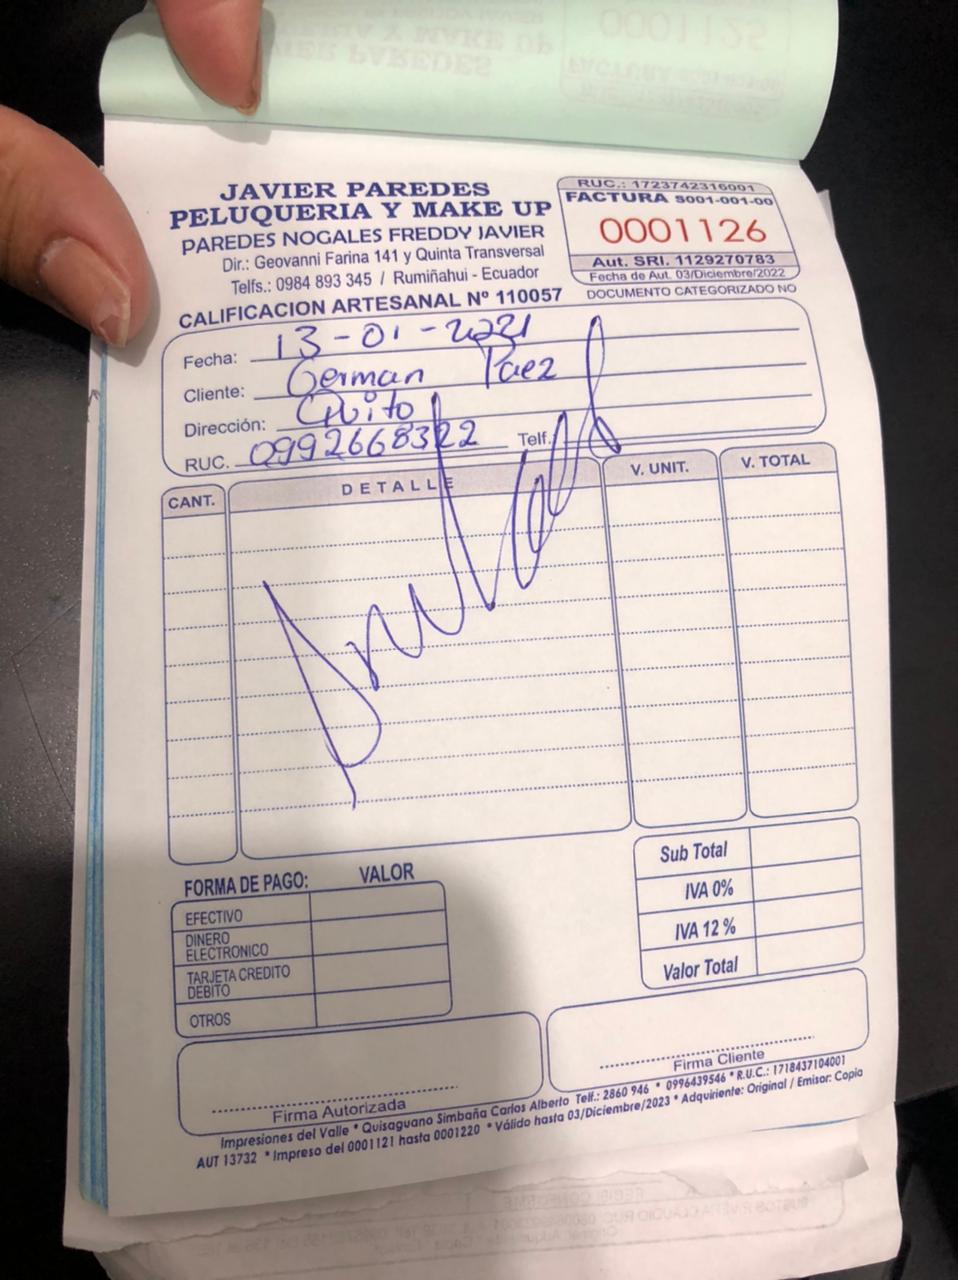 JAVIER PAREDES
PELUQUERIA Y MAKE UP
PAREDES NOGALES FREDDY JAVIER
Dir.: Geovanni Farina 141 y Quinta Transversal
Telfs.: 0984 893 345 / Rumiñahui - Ecuador
CALIFICACION ARTESANAL Nº 110057
RUC.: 1723742316001
FACTURA S001-001-00
0001126
Aut. SRI. 1129270783
Fecha de Aut. 03/Diciembre/2022
DOCUMENTO CATEGORIZADO NO
Fecha: 13-01-2021
Cliente: German Paez
Dirección: Quito
RUC. 0992668322 Telf.
CANT. DETALLE V. UNIT. V. TOTAL
Anulado
Sub Total
IVA 0%
IVA 12 %
Valor Total
FORMA DE PAGO: VALOR
EFECTIVO
DINERO
ELECTRONICO
TARJETA CREDITO
DEBITO
OTROS
Firma Autorizada
Firma Cliente
Impresiones del Valle * Quisaguano Simbaña Carlos Alberto Telf.: 2860 946 * 0996439546 * R.U.C.: 1718437104001
AUT 13732 * Impreso del 0001121 hasta 0001220 * Válido hasta 03/Diciembre/2023 * Adquiriente: Original / Emisor: Copia